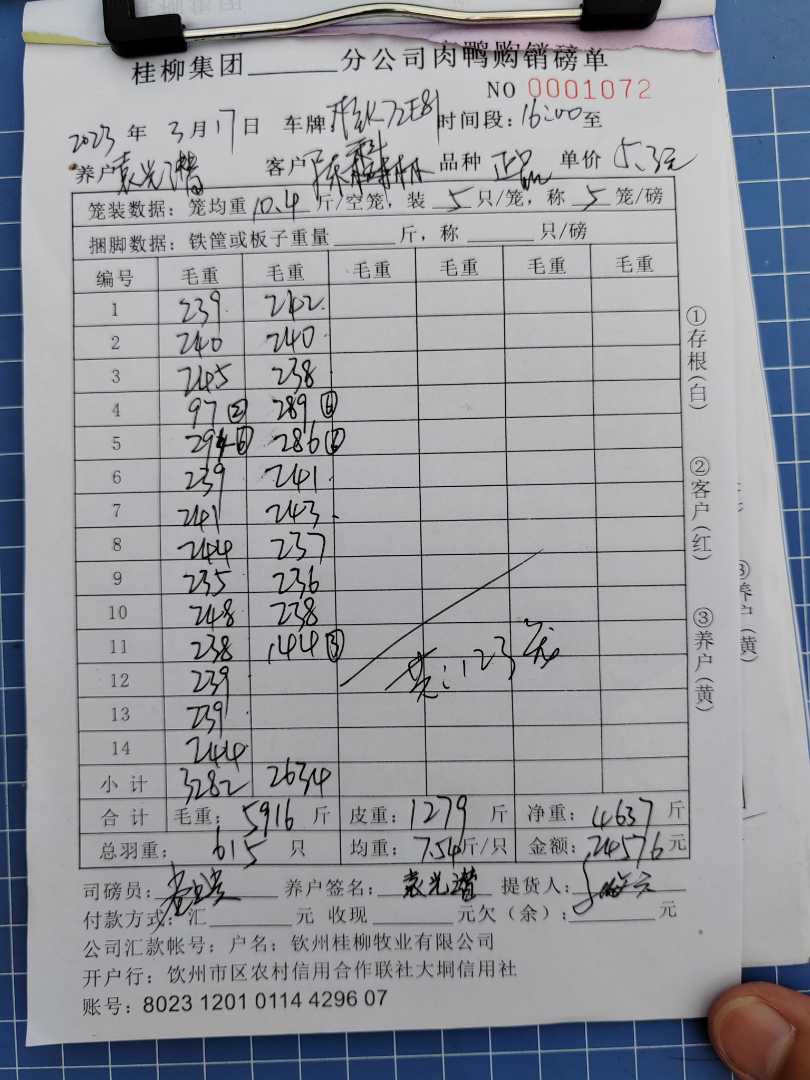 桂柳集团______分公司肉鸭购销磅单
NO 0001072
2023 年 3 月 17 日 车牌 72E81 时间段：16:00 至
养户 袁光潜 客户 陈 林 品种 正品 单价 5.3元
笼装数据：笼均重 10.4 斤/空笼，装 5 只/笼，称 5 笼/磅
捆脚数据：铁筐或板子重量______斤，称______只/磅
编号 毛重 毛重 毛重 毛重 毛重 毛重
1 239 242
2 240 240
3 245 238
4 97② 289⑥
5 294⑥ 286⑥
6 239 241
7 241 243
8 244 237
9 235 236
10 248 238
11 238 144③
12 239
13 239
14 244
共：123笼
小计 3282 2634
合计 毛重：5916 斤 皮重：1279 斤 净重：4637 斤
总羽重：615 只 均重：7.54 斤/只 金额：24576 元
司磅员： 养户签名：袁光潜 提货人：
付款方式：汇______元 收现______元欠（余）：______元
公司汇款帐号：户名：钦州桂柳牧业有限公司
开户行：饮州市区农村信用合作联社大垌信用社
账号：8023 1201 0114 4296 07
①存根(白)
②客户(红)
③养户(黄)
③养户(黄)